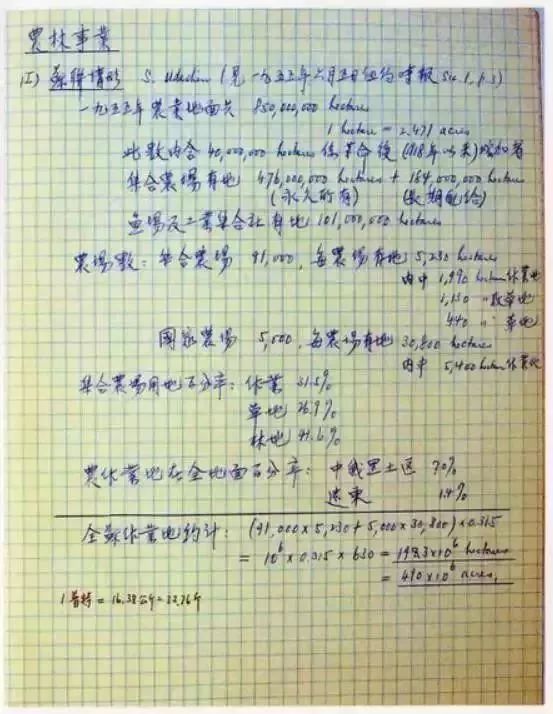 農林事業
(I) 蘇聯情形 S. Udachin (見一九五五年六月五日紐約時報 Sec. 1, p. 5)
一九五五年農業地面共 850,000,000 hectares
1 hectare = 2.471 acres
此數內含 40,000,000 hectares 係革命後 (1918年以來) 增加者
集合農場有地 476,000,000 hectares + 184,000,000 hectares
(永久所有) (長期配給)
魚場及工業集合社有地 101,000,000 hectares
農場數: 集合農場 91,000, 每農場有地 5,230 hectares
內中 1,990 hectares 作業地
1,150 〃 牧草地
440 〃 草地
国家農場 5,000, 每農場有地 30,800 hectares
內中 5,400 hectares 作業地
集合農場用地百分率: 作業 31.5%
草地 26.9%
林地 41.6%
農作業地在全地面百分率: 中俄黑土区 70%
遠東 1.4%
全蘇作業地約計: (91,000 × 5,230 + 5,000 × 30,800) × 0.315
= 10⁶ × 0.315 × 630 = 198.3 × 10⁶ hectares
= 490 × 10⁶ acres.
1普特 = 16.38公斤 = 32.76斤